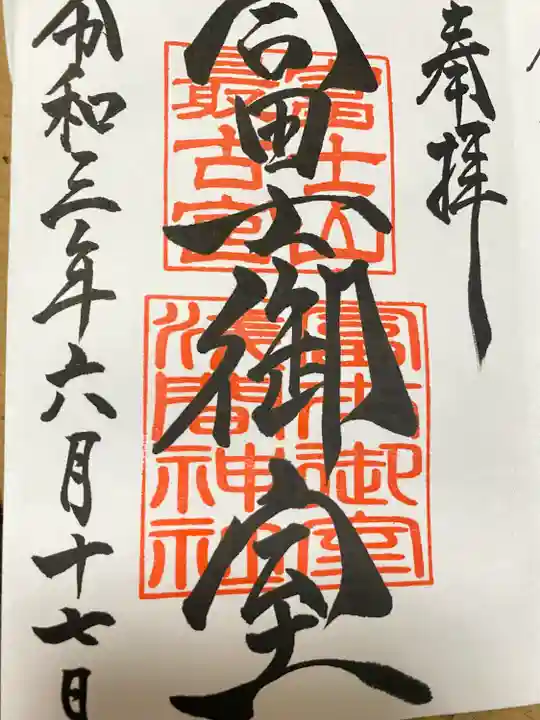 奉拝
冨士御室
富士山
最古宮
冨士御室
浅間神社
令和三年六月十七日